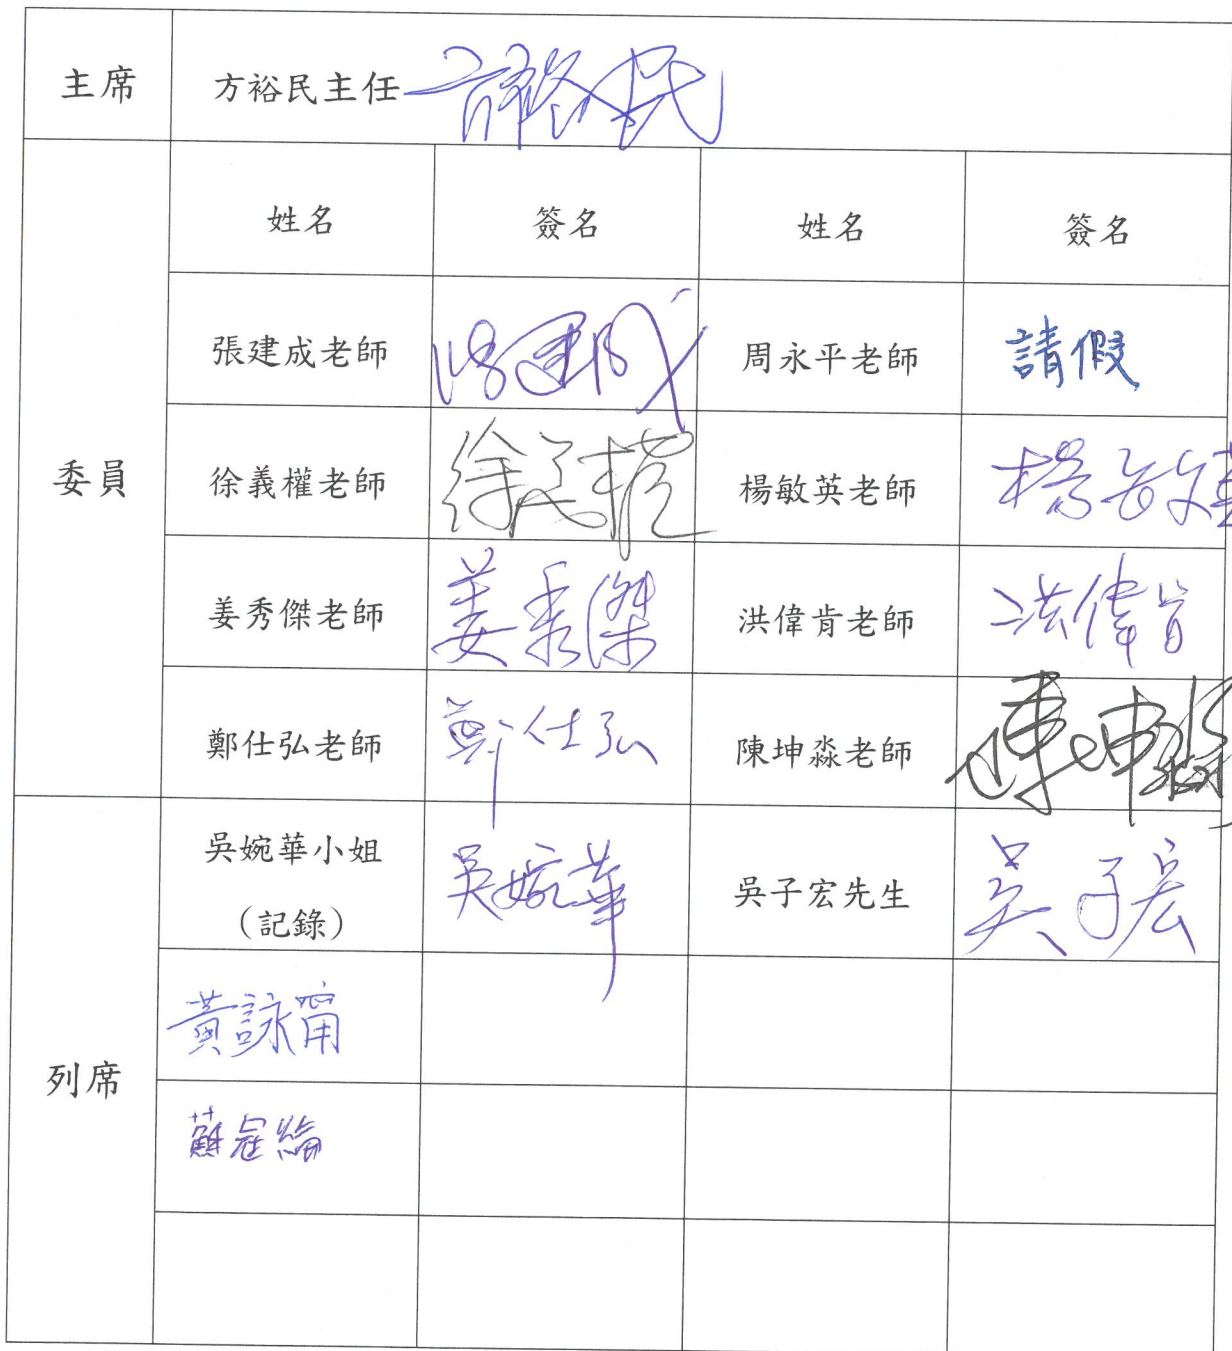 主席 方裕民主任 方裕民
姓名 簽名 姓名 簽名
張建成老師 張建成 周永平老師 請假
委員 徐義權老師 徐義權 楊敏英老師 楊敏英
姜秀傑老師 姜秀傑 洪偉肯老師 洪偉肯
鄭仕弘老師 鄭仕弘 陳坤淼老師 陳坤淼
吳婉華小姐 吳婉華 吳子宏先生 吳子宏
（記錄）
黃詠甯
列席
蘇冠綸